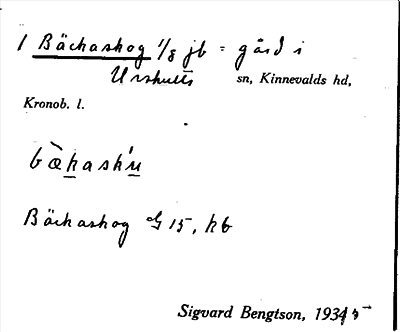 1 Bäckaskog 1/8 jb = gård i
Urshults sn, Kinnevalds hd,
Kronob. l.
bæ̀kaskú
Bäckaskog G 15, kb
Sigvard Bengtson, 1934